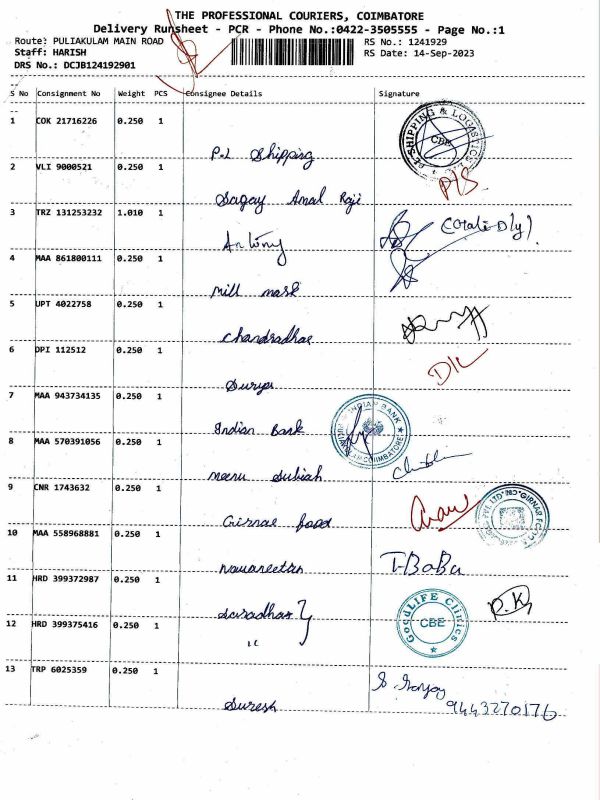 THE PROFESSIONAL COURIERS, COIMBATORE
Delivery Runsheet - PCR - Phone No.:0422-3505555 - Page No.:1
Route: PULIAKULAM MAIN ROAD RS No.: 1241929
Staff: HARISH RS Date: 14-Sep-2023
DRS No.: DCJB124192901
S No Consignment No Weight PCS Consignee Details Signature
1 COK 21716226 0.250 1
P.L Shipping
SHIPPING & LOGISTICS CBE
2 VLI 9000521 0.250 1
Sagay Amal Raji
3 TRZ 131253232 1.010 1
Antony
4 MAA 861800111 0.250 1
Mill mark
5 UPT 4022758 0.250 1
Chandradhar
6 DPI 112512 0.250 1
Surya
7 MAA 943734135 0.250 1
Indian Bank
INDIAN BANK COIMBATORE
8 MAA 570391056 0.250 1
meenu Subiah
9 CNR 1743632 0.250 1
Girnar food
10 MAA 558968881 0.250 1
navaneetan
T-BaBu
11 HRD 399372987 0.250 1
Saradhas
GoodLIFE Clinics CBE
P.K
12 HRD 399375416 0.250 1
"
13 TRP 6025359 0.250 1
Suresh
9443270176